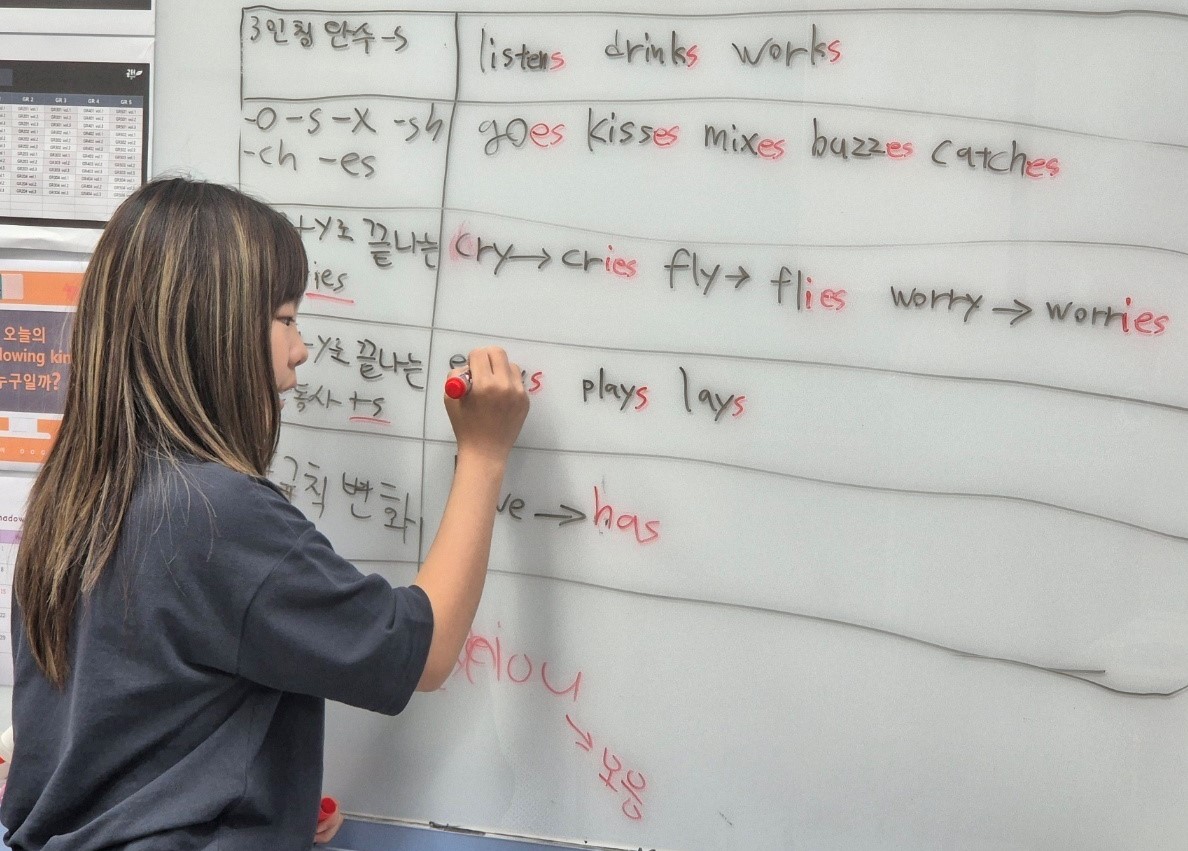 3인칭 단수 -s
listens drinks works
-o -s -x -sh
-ch -es
goes kisses mixes buzzes catches
+y로 끝나는
ies
cry → cries fly → flies worry → worries
-y로 끝나는
동사 +s
s plays lays
규칙 변화
ve → has
eiou
모음
GR 2 GR 3 GR 4 GR 5
오늘의
lowing kin
누구일까?